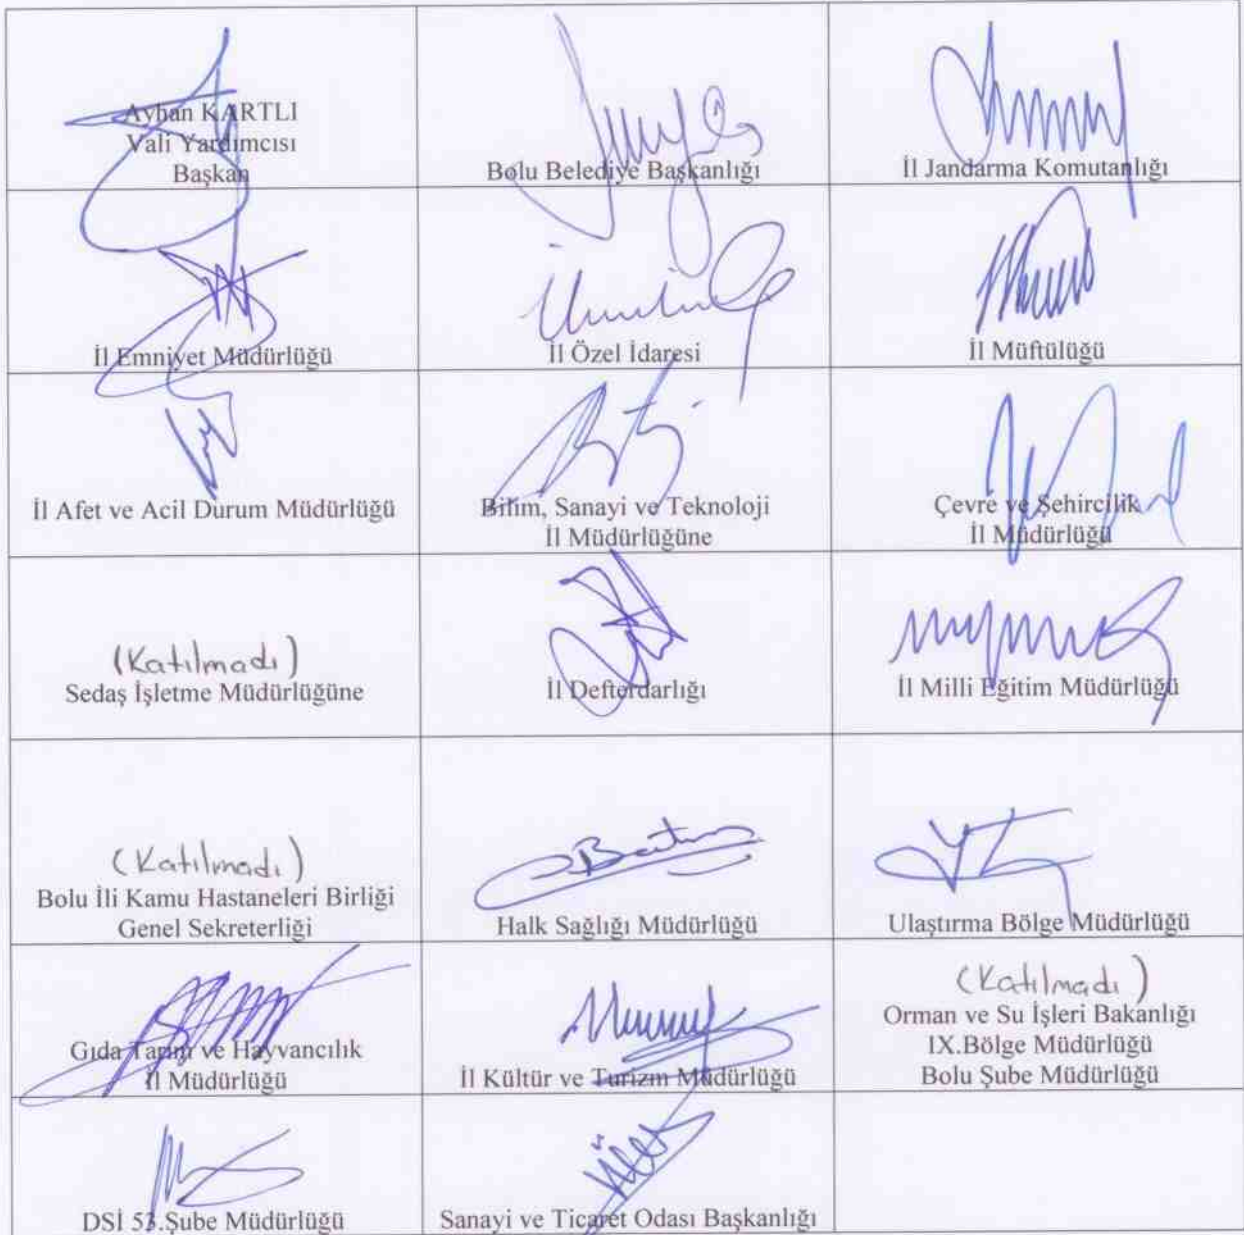 Ayhan KARTLI
Vali Yardımcısı
Başkan
Bolu Belediye Başkanlığı
İl Jandarma Komutanlığı
İl Emniyet Müdürlüğü
İl Özel İdaresi
İl Müftülüğü
İl Afet ve Acil Durum Müdürlüğü
Bilim, Sanayi ve Teknoloji
İl Müdürlüğüne
Çevre ve Şehircilik
İl Müdürlüğü
(Katılmadı)
Sedaş İşletme Müdürlüğüne
İl Defterdarlığı
İl Milli Eğitim Müdürlüğü
(Katılmadı)
Bolu İli Kamu Hastaneleri Birliği
Genel Sekreterliği
Halk Sağlığı Müdürlüğü
Ulaştırma Bölge Müdürlüğü
Gıda Tarım ve Hayvancılık
İl Müdürlüğü
İl Kültür ve Turizm Müdürlüğü
(Katılmadı)
Orman ve Su İşleri Bakanlığı
IX.Bölge Müdürlüğü
Bolu Şube Müdürlüğü
DSİ 53.Şube Müdürlüğü
Sanayi ve Ticaret Odası Başkanlığı